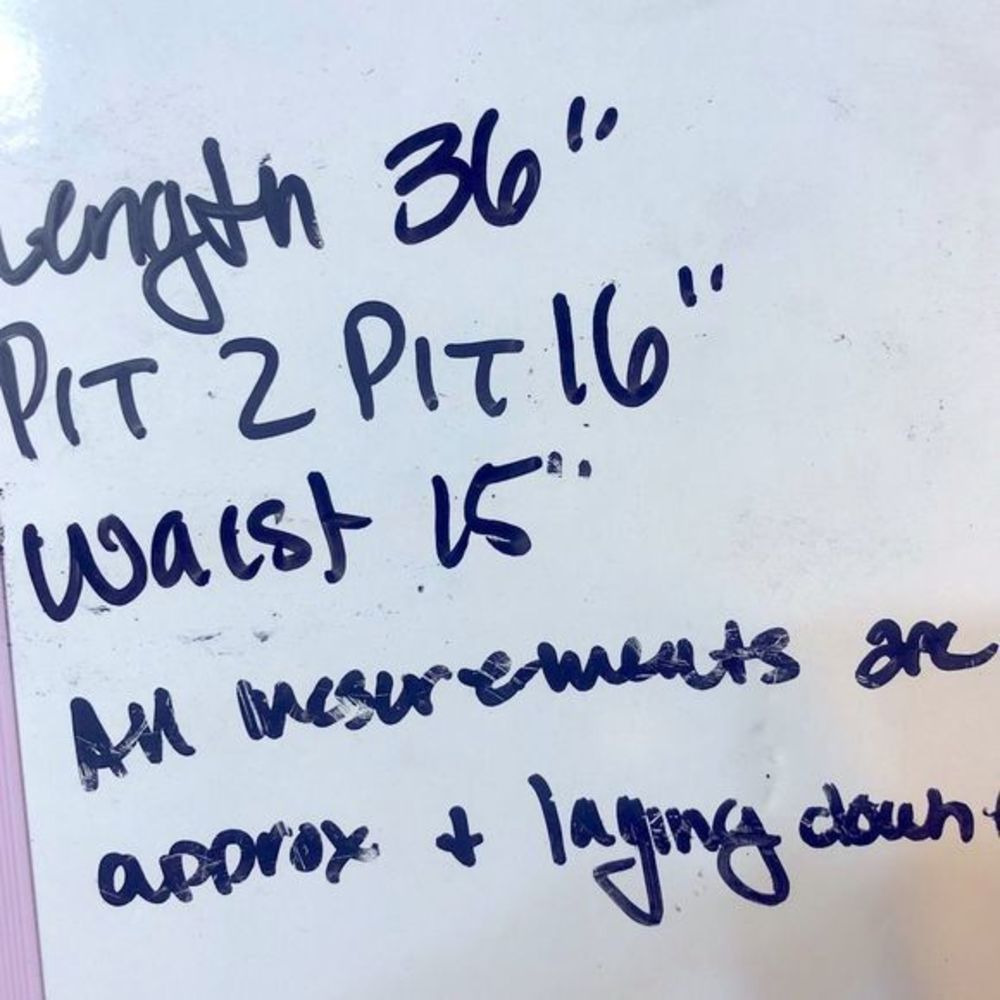 Length 36"
PIT 2 PIT 16"
Waist 15"
All mesurements are
approx + laying down